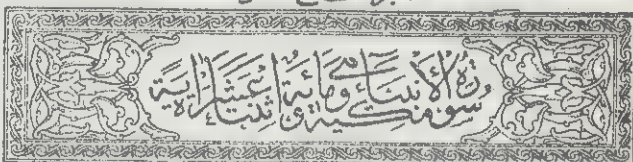 سُورَةُ الْأَنْبِيَاءِ مَكِّيَّةٌ وَهِيَ مِائَةٌ وَاثْنَتَا عَشْرَةَ آيَةً